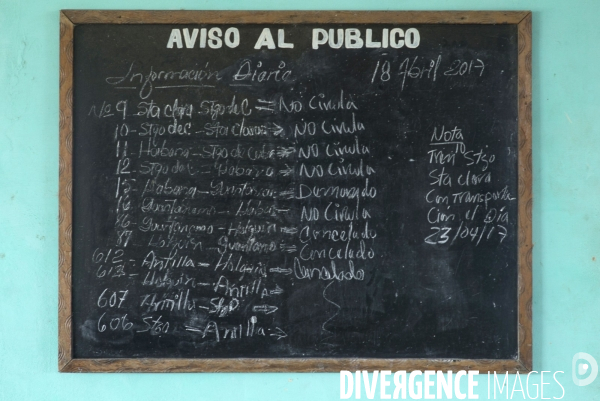 AVISO AL PUBLICO
Información Diaria 18 Abril 2017
Nº 9 Sta clara Stgo de C = No Circula
10 - Stgo de C - Sta clara = No Circula
11 - Habana - Stgo de Cuba No Circula
12 Stgo de C - Habana No Circula
Habana - Demorado
- Habana No Circula
Guantanamo - Holguin Cancelado
Holguin - Guantanamo Cancelado
612 = Antilla - Holguin = Cancelado
613 = Holguin - Antilla
607 Antilla - Stgo
606 Stgo - Antilla
Nota
Tren 10 Stgo
Sta clara
Con Transporte
Cion el Dia
23/04/17
DIVERGENCE IMAGES D